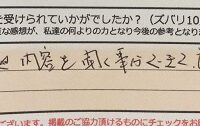 を受けられていかがでしたか？（ズバリ10
な感想が、私達の何よりの力となり今後の参考となりま
内容を聞く事が
ございます。掲載のご協力頂けるものにチェックをお願